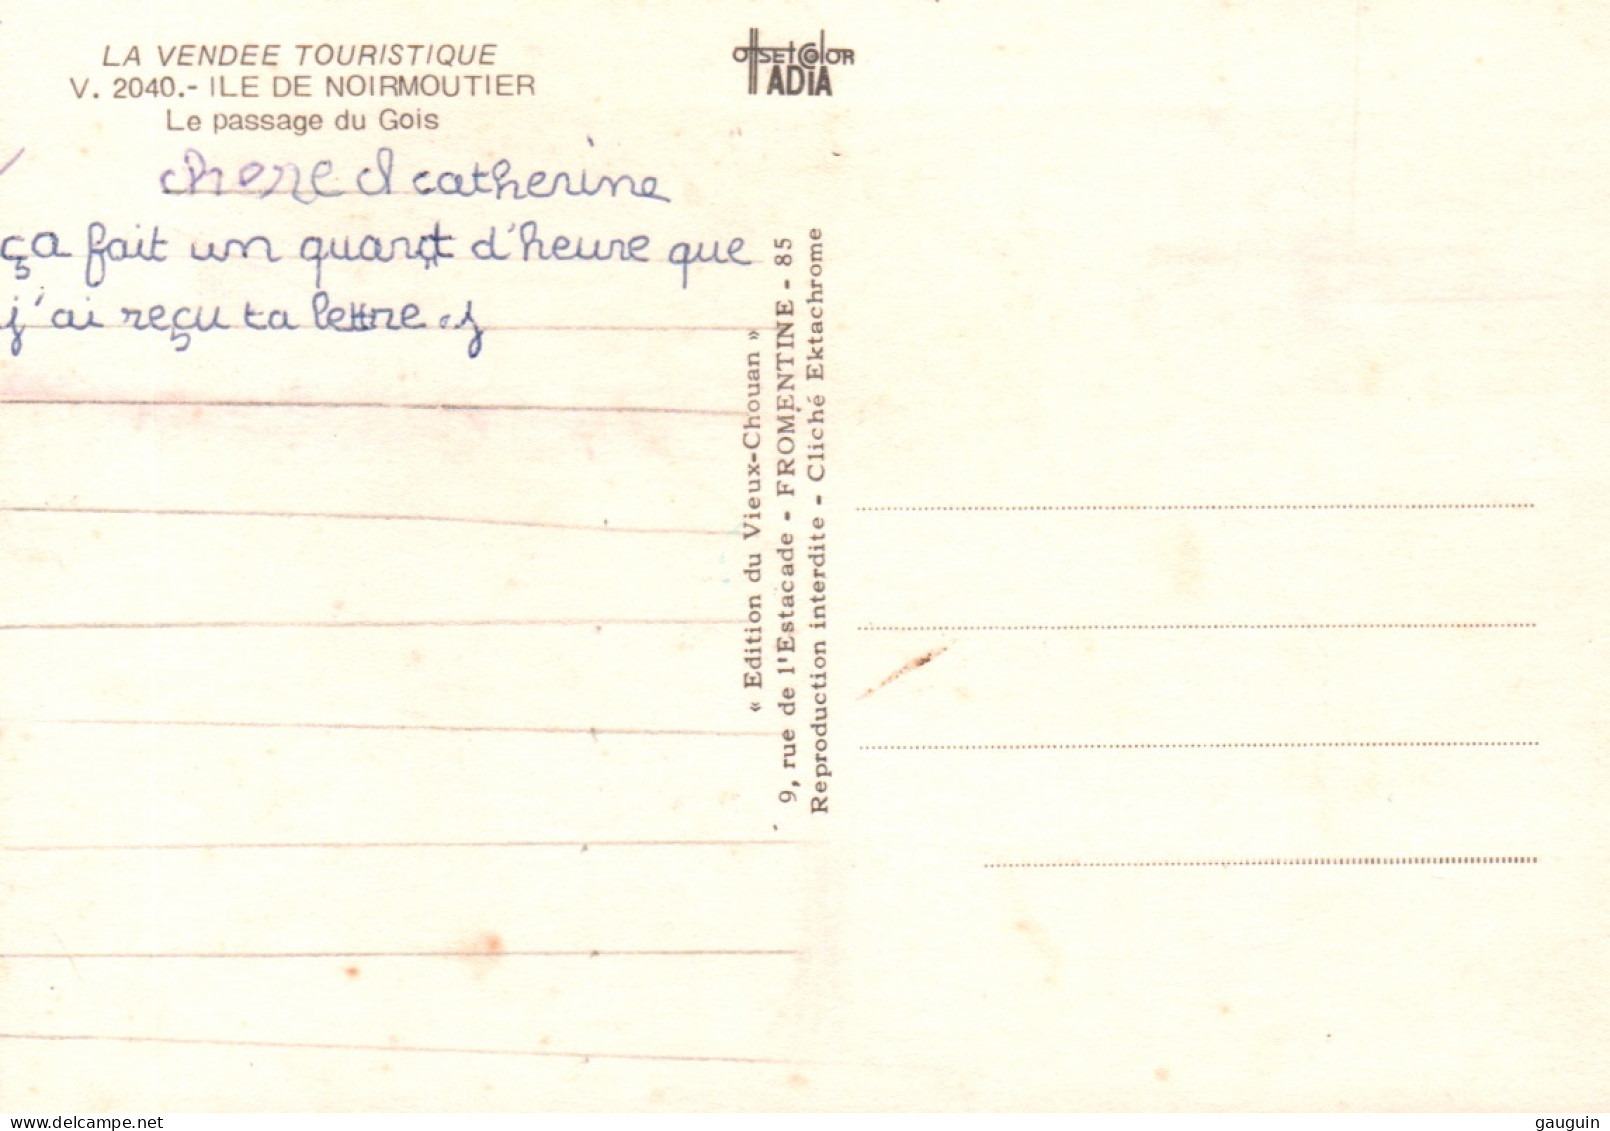 LA VENDEE TOURISTIQUE
V. 2040.- ILE DE NOIRMOUTIER
Le passage du Gois
OffSEt COlOR
ADIA
catherine
ça fait un quart d'heure que
j'ai reçu ta lettre. j
« Edition du Vieux-Chouan »
9, rue de l'Estacade - FROMENTINE - 85
Reproduction interdite - Cliché Ektachrome
gauguin